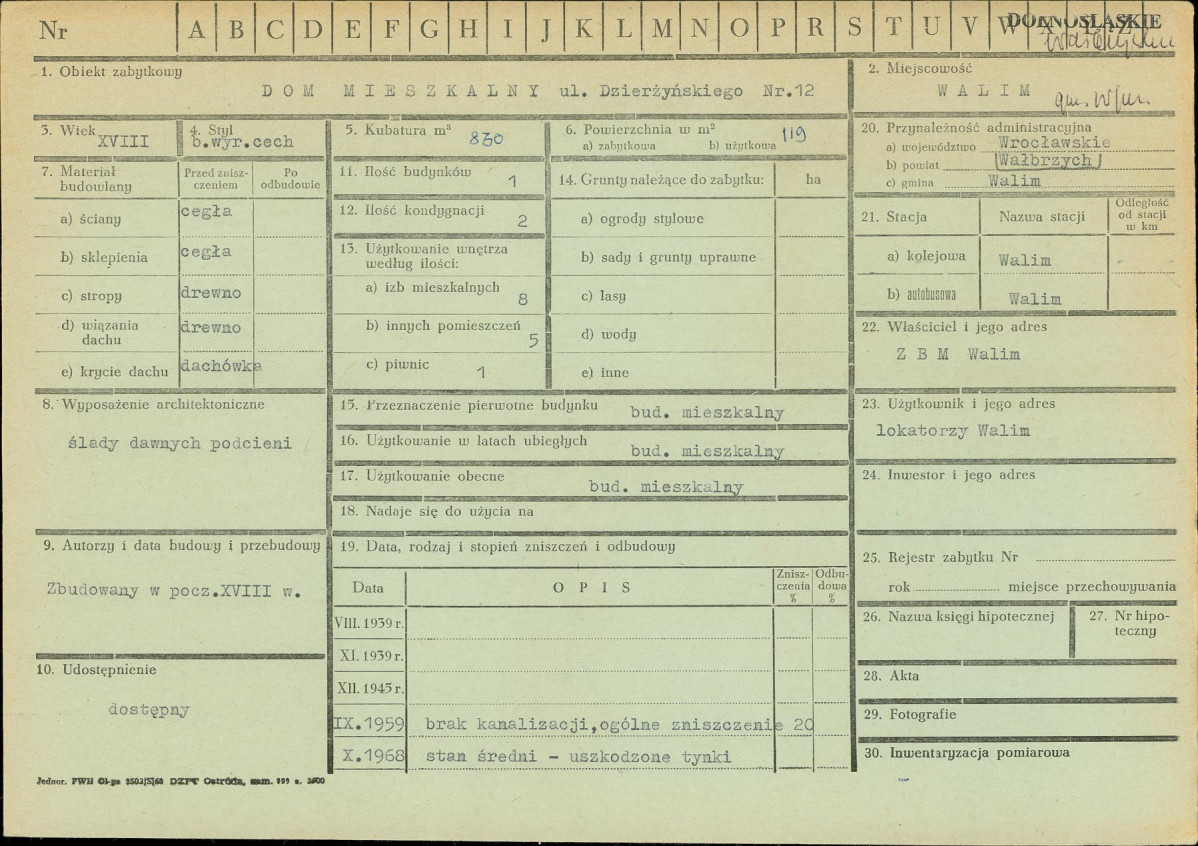 Nr A B C D E F G H I J K L M N O P R S T U V W X Y Z DOLNOŚLĄSKIE
1. Obiekt zabytkowy
DOM MIESZKALNY ul. Dzierżyńskiego Nr.12
2. Miejscowość
WALIM
3. Wiek
XVIII
4. Styl
b.wyr.cech
5. Kubatura m³ 830
6. Powierzchnia w m² 119
a) zabytkowa b) użytkowa
7. Materiał budowlany
Przed zniszczeniem
Po odbudowie
a) ściany cegła
b) sklepienia cegła
c) stropy drewno
d) wiązania dachu drewno
e) krycie dachu dachówka
8. Wyposażenie architektoniczne
ślady dawnych podcieni
9. Autorzy i data budowy i przebudowy
Zbudowany w pocz.XVIII w.
10. Udostępnienie
dostępny
11. Ilość budynków 1
12. Ilość kondygnacji 2
13. Użytkowanie wnętrza
według ilości:
a) izb mieszkalnych 8
b) innych pomieszczeń 5
c) piwnic 1
14. Grunty należące do zabytku: ha
a) ogrody stylowe
b) sady i grunty uprawne
c) lasy
d) wody
e) inne
15. Przeznaczenie pierwotne budynku bud. mieszkalny
16. Użytkowanie w latach ubiegłych bud. mieszkalny
17. Użytkowanie obecne bud. mieszkalny
18. Nadaje się do użycia na
19. Data, rodzaj i stopień zniszczeń i odbudowy
Data OPIS Zniszczenia % Odbudowa %
VIII. 1939 r.
XI. 1939 r.
XII. 1945 r.
IX.1959 brak kanalizacji,ogólne zniszczenie 20
X.1968 stan średni - uszkodzone tynki
20. Przynależność administracyjna
a) województwo Wrocławskie
b) powiat Wałbrzych
c) gmina Walim
21. Stacja Nazwa stacji Odległość od stacji w km
a) kolejowa Walim -
b) autobusowa Walim
22. Właściciel i jego adres
Z B M Walim
23. Użytkownik i jego adres
lokatorzy Walim
24. Inwestor i jego adres
25. Rejestr zabytku Nr
rok miejsce przechowywania
26. Nazwa księgi hipotecznej
27. Nr hipoteczny
28. Akta
29. Fotografie
30. Inwentaryzacja pomiarowa